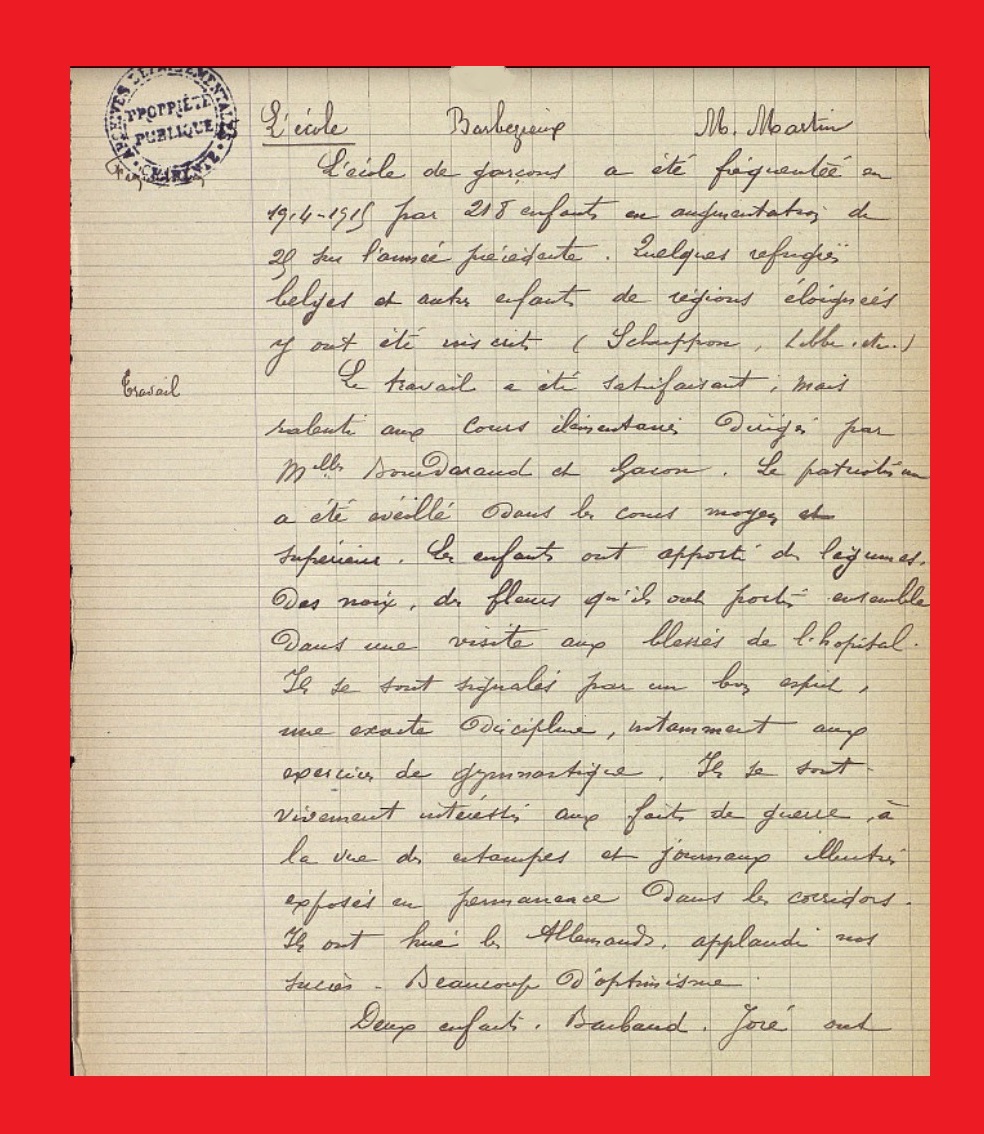 ARCHIVES DÉPARTEMENTALES
PROPRIÉTÉ
PUBLIQUE
CHARENTE
L'école Barbezieux M. Martin
L'école de garçons a été fréquentée en
1914-1915 par 218 enfants en augmentation de
25 sur l'année précédente. Quelques refugiés
belges et autres enfants de régions éloignées
y ont été inscrits ( , etc.)
Travail
Le travail a été satisfaisant ; mais
ralenti aux cours élémentaires dirigés par
Melles et Gacon. Le patriotisme
a été éveillé dans les cours moyen et
supérieur. Les enfants ont apporté des légumes,
des noix, des fleurs qu'ils ont portés ensemble
dans une visite aux blessés de l'hopital.
Ils se sont signalés par un bon esprit,
une exacte discipline, notamment aux
exercices de gymnastique. Ils se sont
vivement intéressés aux faits de guerre, à
la vue des estampes et journaux illustrés
exposés en permanence dans les corridors.
Ils ont hué les Allemands, applaudi nos
succès - Beaucoup d'optimisme
Deux enfants, Barbaud, Joré ont